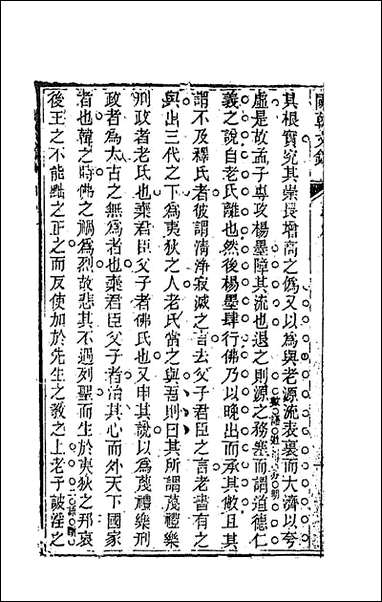 其根實究其崇長增高之僞又以爲與老源流表裏而大濟以夸
虛是故孟子專攻楊墨障其流也退之則源之務塞而謂道德仁
義之說自老氏離也然後楊墨肆行佛乃以晚出而承其敝且其
謂不及釋氏者彼謂清淨寂滅之言去父子君臣之言老皆有之
與出三代之下爲夷狄之人老氏當之與吾則曰其所謂蔑禮樂
刑政者老氏也棄君臣父子者佛氏也又申其說以爲蔑禮樂刑
政者爲太古之無爲者也棄君臣父子者治其心而外天下國家
者也韓之時佛之禍爲烈故悲其不過列聖而生於夷狄之邦哀
後王之不能黜之正之而反使加於先生之教之上老子詖淫之